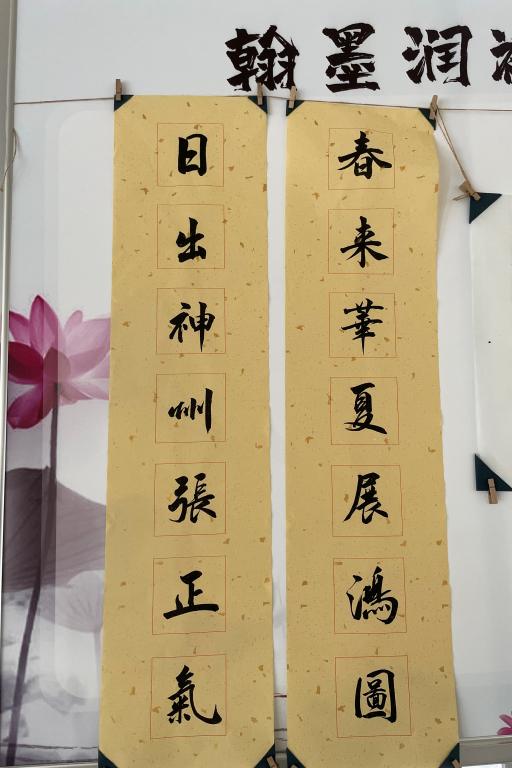 翰墨润
春来華夏展鴻圖
日出神州張正氣